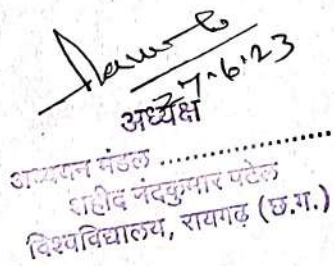 27.6.23
अध्यक्ष
अध्ययन मंडल ......................
शहीद नंदकुमार पटेल
विश्वविद्यालय, रायगढ़ (छ.ग.)